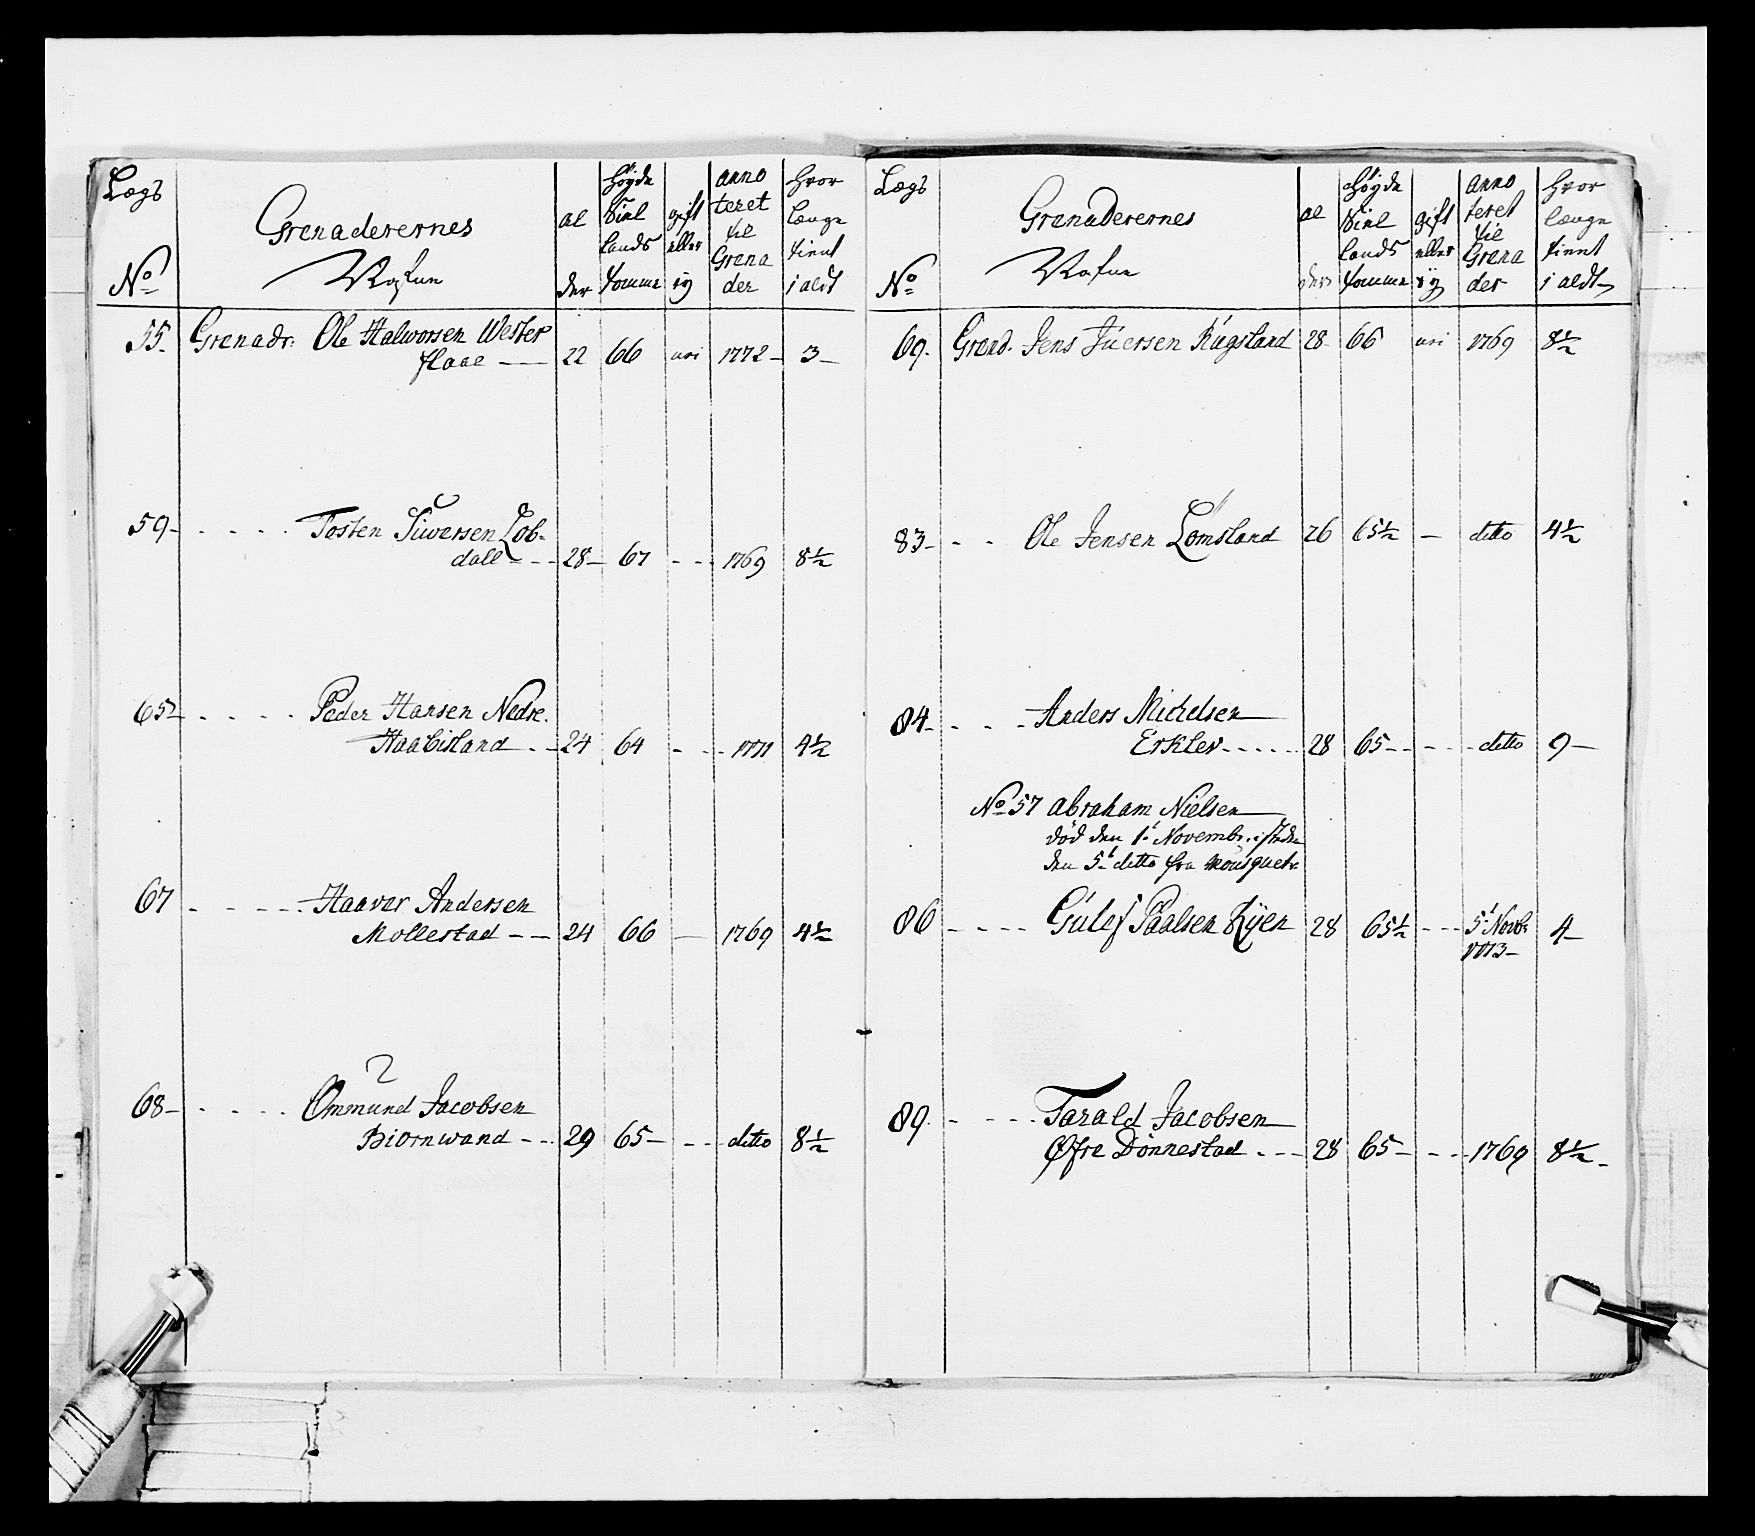 Lægs
No
Grenaderernes
Nafne
al
der
Høyde
Siel
lands
tomme
gift
eller
ey
anno
teret
til
Grena
der
Hvor
længe
tient
i aldt
55. Grenadr: Ole Halworsen Wester
flaae — 22 66 uri 1772 - 3 -
59 - Tosten Siwersen Lob-
dall - - 28 - 67 - - - 1769 8½
65 Peder Hansen Nedre.
Haabistand - - 24 64 - - - 1771 4½
67 Haaver Andersen
Mollestad - - 24 66 — 1769 4½
68 - Ommund Jacobsen
Biornwand - - 29 65 - - - ditto 8½
Lægs
No
Grenaderernes
Nafne
al
der
Høyde
Siel
lands
tomme
gift
eller
ey
anno
teret
til
Grena
der
Hvor
længe
tient
i aldt
69. Grend. Jens Juersen Rugsland 28 66 uri 1769 8½
83 - - - Ole Jensen Lomsland 26 65½ — ditto 4½
84 - - - Anders Michelsen
Erklev - - - - - 28 65 - - - - - ditto 9 —
No 57 Abraham Nielsen
död den 1. Novembr. i steden
den 5t ditto fra Mousquetr
86 - - - - Gulef Paalsen Kyen 28 65½ - - - 5t Novbr 4 -
1773 -
89. - - - - Tarald Jacobsen
Øfre Donnestad - - - 28 65 - - - - 1769 8½ -